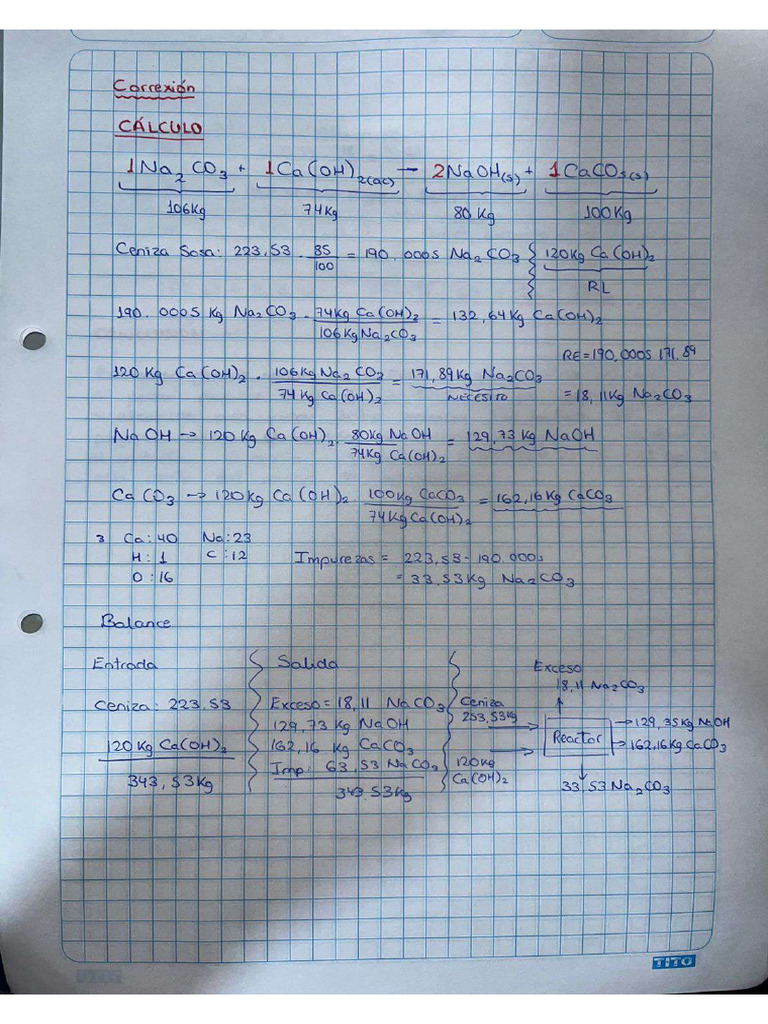 Correxión
CÁLCULO
1Na₂CO₃ + 1Ca(OH)₂(ac) — 2NaOH(s) + 1CaCO₃(s)
106kg 74kg 80 kg 100kg
Ceniza Sosa: 223,53 · 85/100 = 190.0005 Na₂CO₃ 120kg Ca(OH)₂
RL
190.0005 kg Na₂CO₃ · 74kg Ca(OH)₂/106kg Na₂CO₃ = 132,64kg Ca(OH)₂
RE = 190,0005 171.89
120 kg Ca(OH)₂ · 106kg Na₂CO₃/74kg Ca(OH)₂ = 171,89kg Na₂CO₃
NECESITO
= 18,11kg Na₂CO₃
NaOH → 120 kg Ca(OH)₂ · 80kg NaOH/74kg Ca(OH)₂ = 129,73 kg NaOH
CaCO₃ → 120kg Ca(OH)₂ · 100kg CaCO₃/74kg Ca(OH)₂ = 162,16 kg CaCO₃
3 Ca: 40 Na: 23
H: 1 C: 12
O: 16
Impurezas = 223,53 - 190.0005
= 33,53kg Na₂CO₃
Balance
Entrada
Ceniza: 223,53
120kg Ca(OH)₂
343,53kg
Salida
Exceso = 18,11 NaCO₃
129,73 kg NaOH
162,16 kg CaCO₃
Imp: 63,53 NaCO₂
343.53kg
Exceso
18,11 Na₂CO₃
Ceniza
253,53kg
Reactor
129,35 kg NaOH
162,16kg CaCO₃
120kg
Ca(OH)₂
33 53 Na₂CO₃
TITO